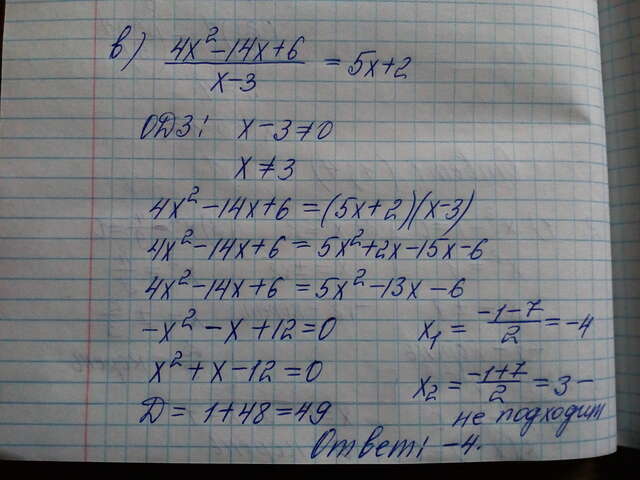 в) (4x²-14x+6)/(x-3) = 5x+2
ОДЗ: x-3≠0
x≠3
4x²-14x+6=(5x+2)(x-3)
4x²-14x+6=5x²+2x-15x-6
4x²-14x+6=5x²-13x-6
-x²-x+12=0
x²+x-12=0
D= 1+48=49
x₁ = (-1-7)/2 = -4
x₂ = (-1+7)/2 = 3 -
не подходит
Ответ: -4.